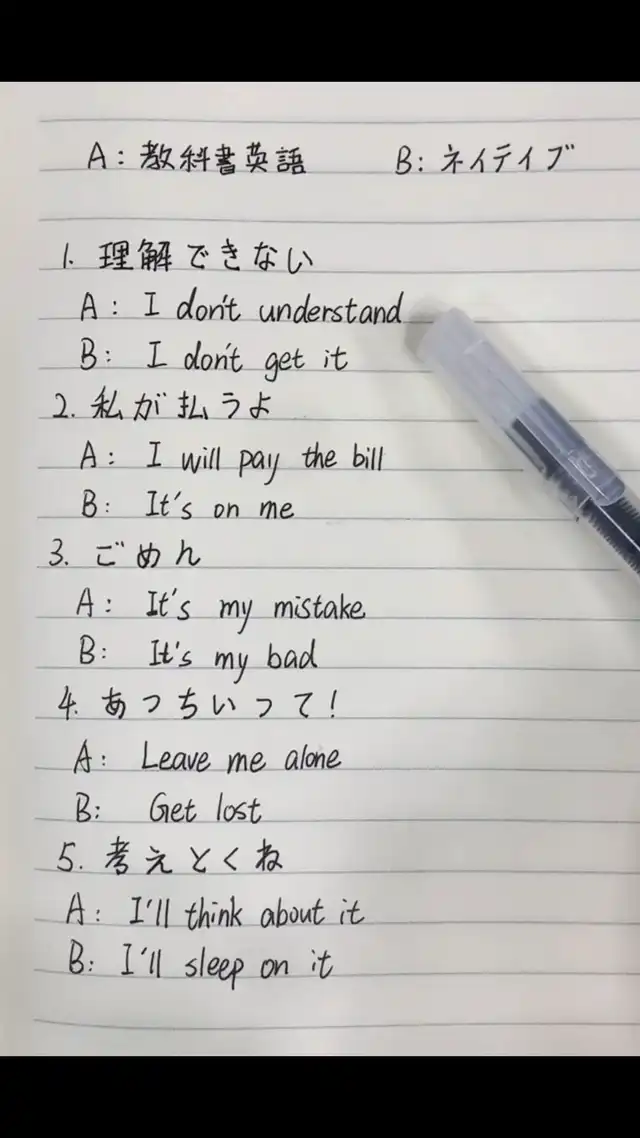 A: 教科書英語 B: ネイティブ
1. 理解できない
A: I don't understand
B: I don't get it
2. 私が払うよ
A: I will pay the bill
B: It's on me
3. ごめん
A: It's my mistake
B: It's my bad
4. あっちいって!
A: Leave me alone
B: Get lost
5. 考えとくね
A: I'll think about it
B: I'll sleep on it